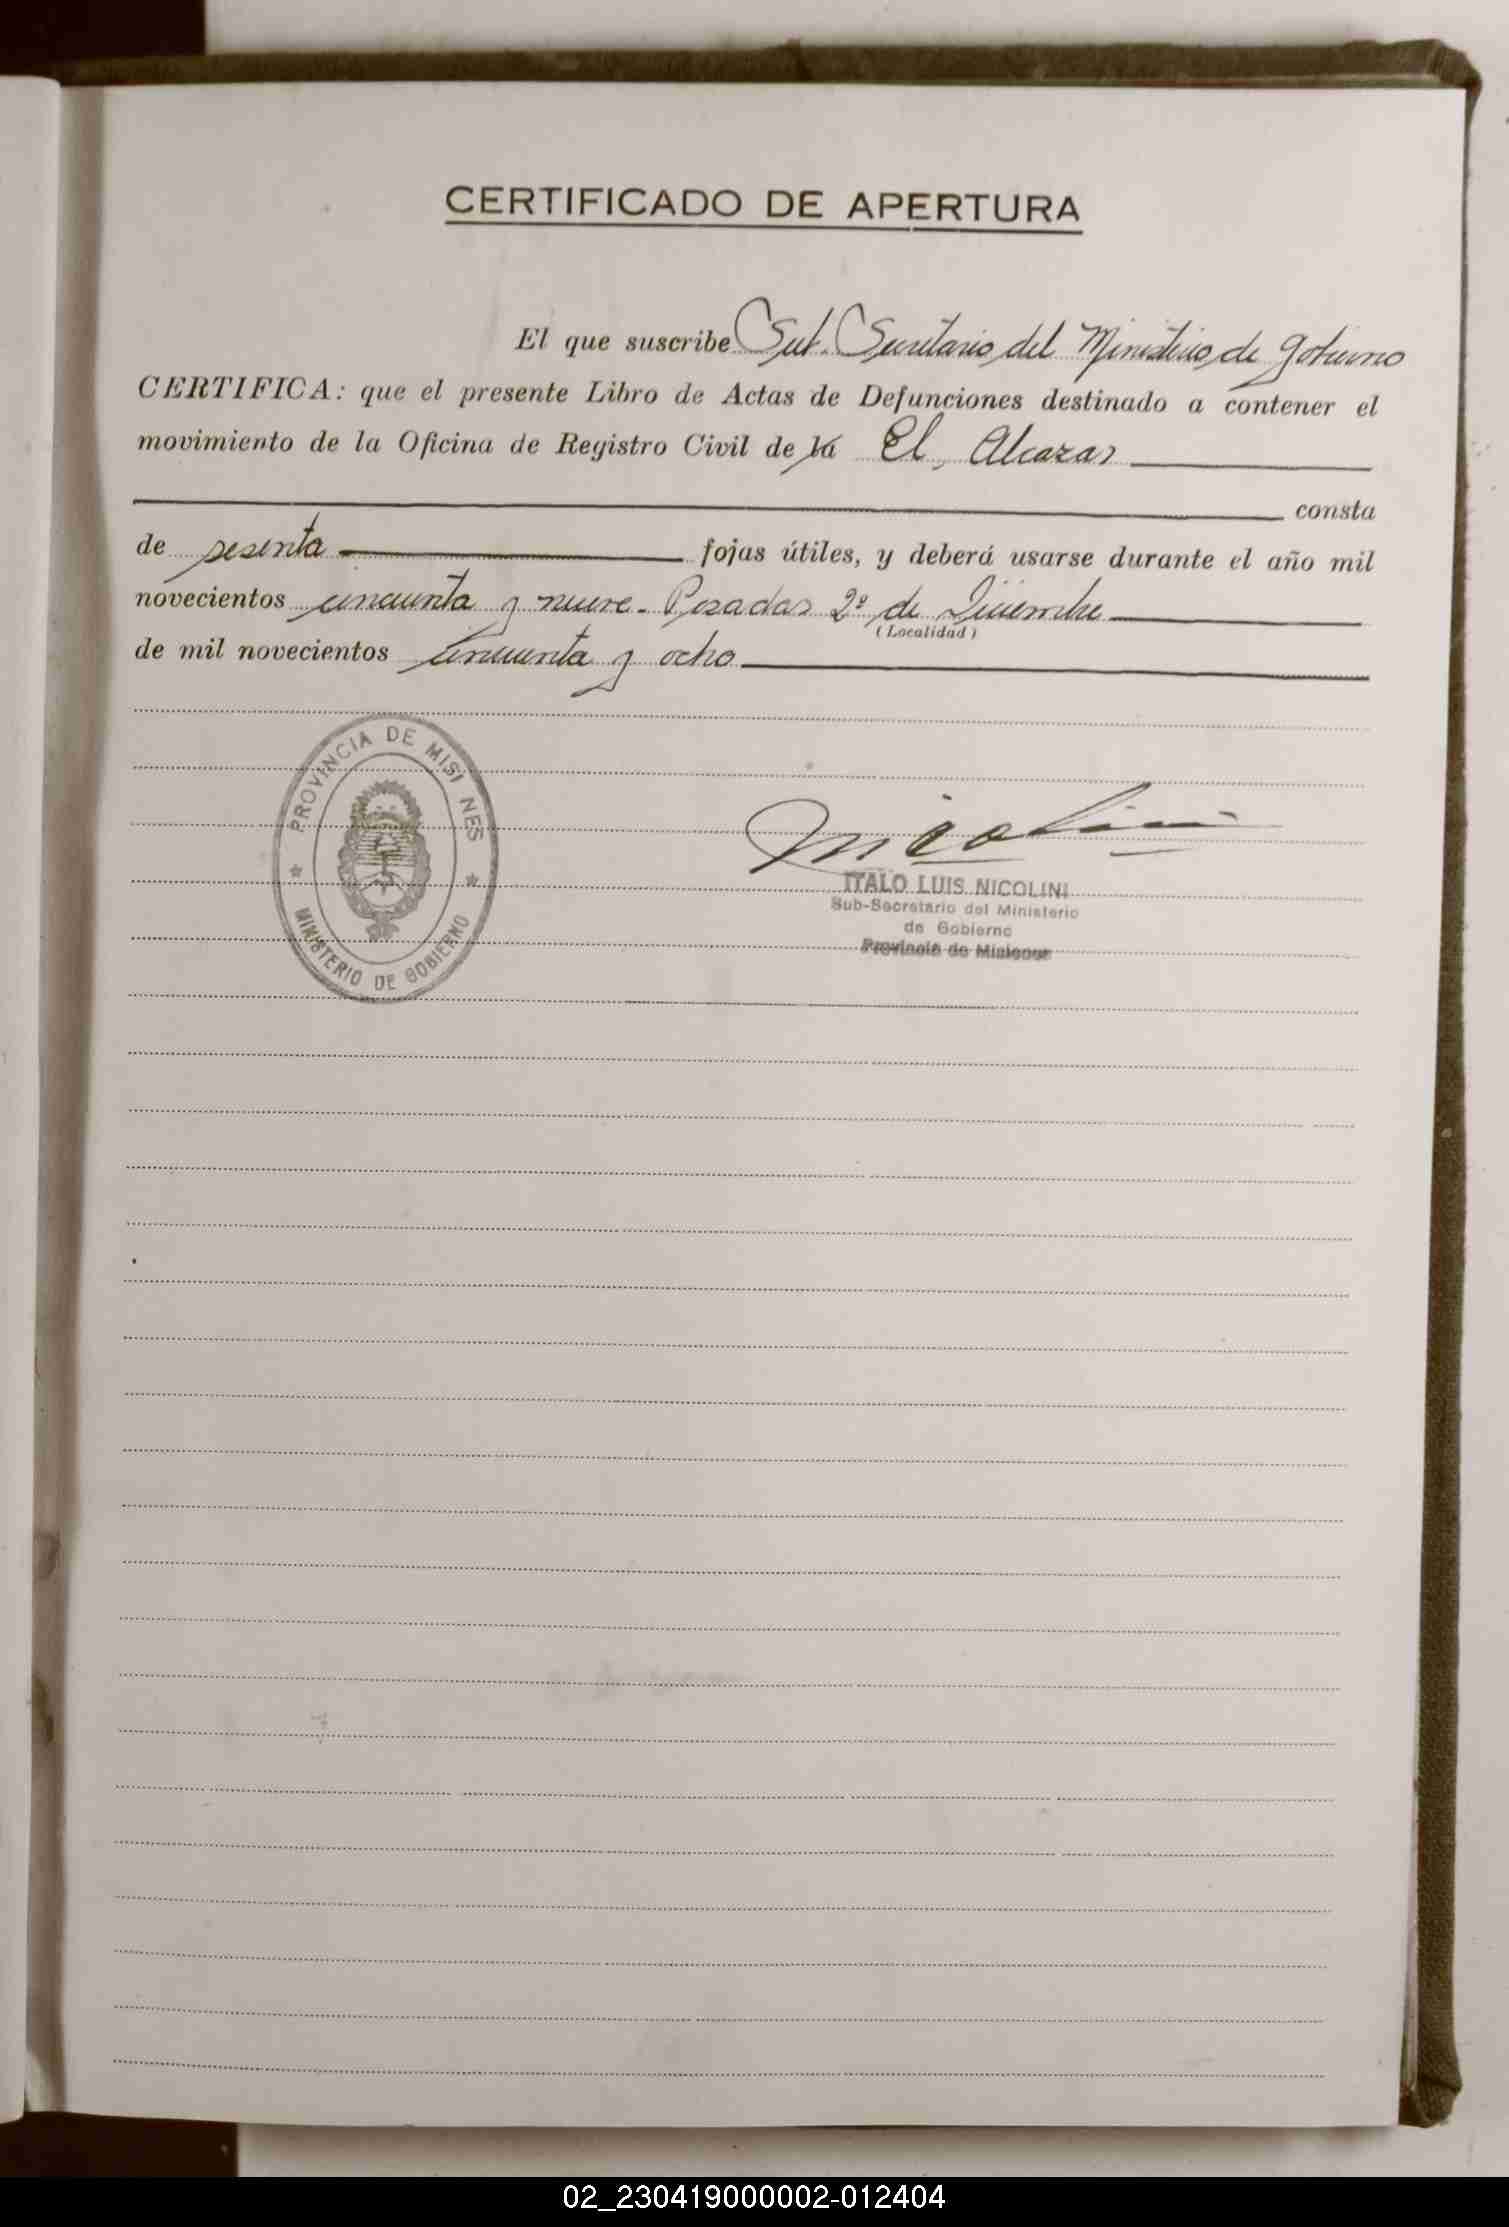 CERTIFICADO DE APERTURA
El que suscribe Sub. Secretario del Ministerio de Gobierno
CERTIFICA: que el presente Libro de Actas de Defunciones destinado a contener el
movimiento de la Oficina de Registro Civil de la El Alcazar
consta
de sesenta fojas útiles, y deberá usarse durante el año mil
novecientos cincuenta y nueve. Posadas 2º de Diciembre
(Localidad)
de mil novecientos cincuenta y ocho
PROVINCIA DE MISI NES
MINISTERIO DE GOBIERNO
Nicolini
ITALO LUIS NICOLINI
Sub-Secretario del Ministerio
de Gobierno
Provincia de Misiones
02_230419000002-012404